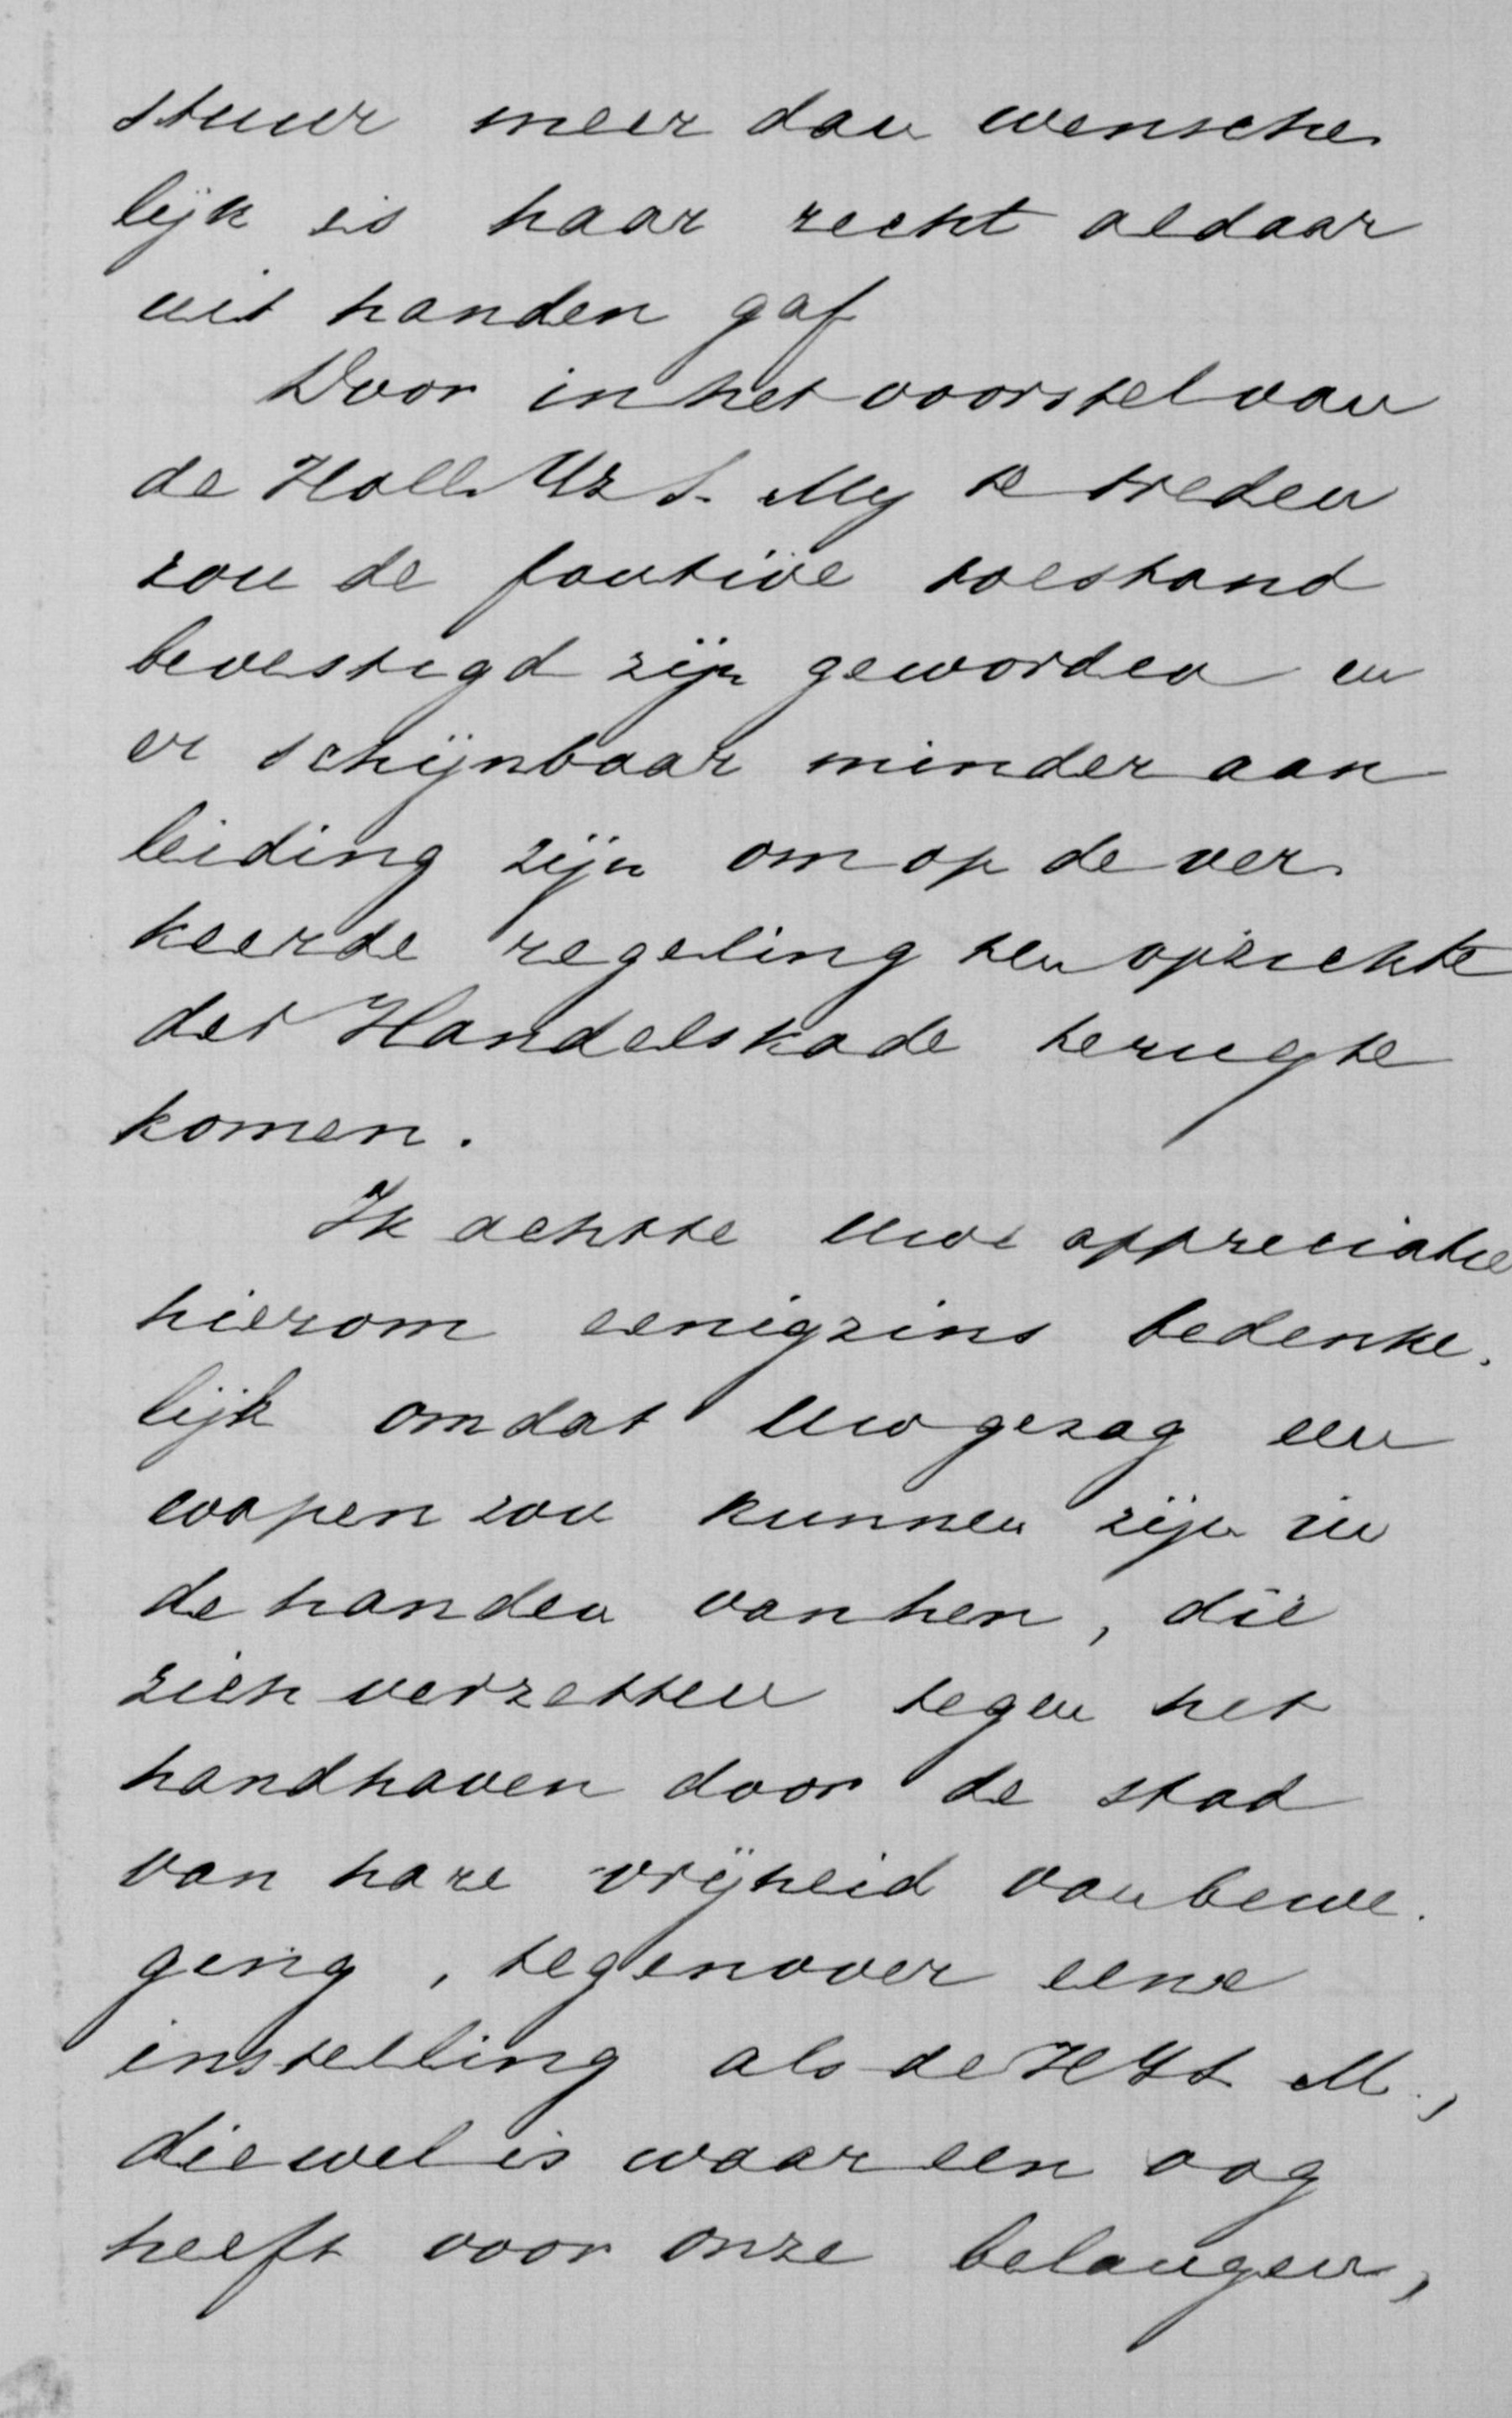 stuur meer dan wensche-
lijk is haar recht aldaar
uit handen gaf
Door in het voorstel van
de Holl. IJz S. Mij te treden
zou de foutive toestand
bevestigd zijn geworden en
er schijnbaar minder aan
leiding zijn om op de ver-
keerde regeling ten opzichte
der Handelskade terug te
komen.
Ik achtte Uwe appreciatie
hierom eenigzins bedenke-
lijk omdat Uw gezag een
wapen zou kunnen zijn in
de handen van hen, die
zich verzetten tegen het
handhaven door de stad
van hare vrijheid van bewe-
ging, tegenover eene
instelling als de HYS M.,
die wel is waar een oog
heeft voor onze belangen,